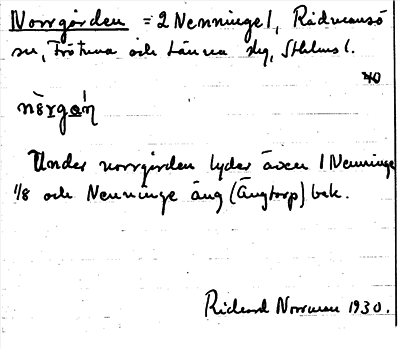 Norrgården = 2 Nenninge 1, Rådmansö
sn, Frötuna och Länna slg, Sthlms l.
40
Under norrgården lyder även 1 Nenninge
1/8 och Nenninge äng (Ängtorp) bek.
Rickard Norrman 1930.